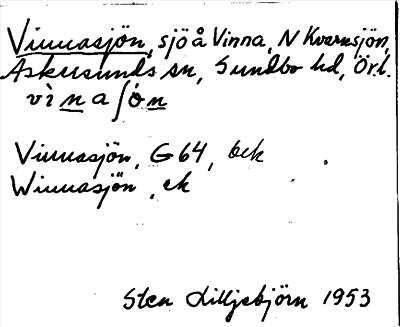 Vinnasjön, sjö å Vinna, N Kvarnsjön,
Askersunds sn, Sundbo hd, Ör.l.
vìnaʃòn
Vinnasjön, G 64, bek
Winnasjön, ek
Sten Lilljebjörn 1953